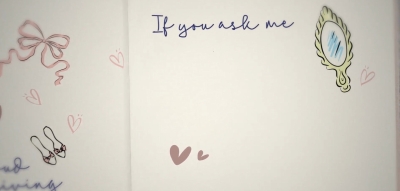 If you ask me